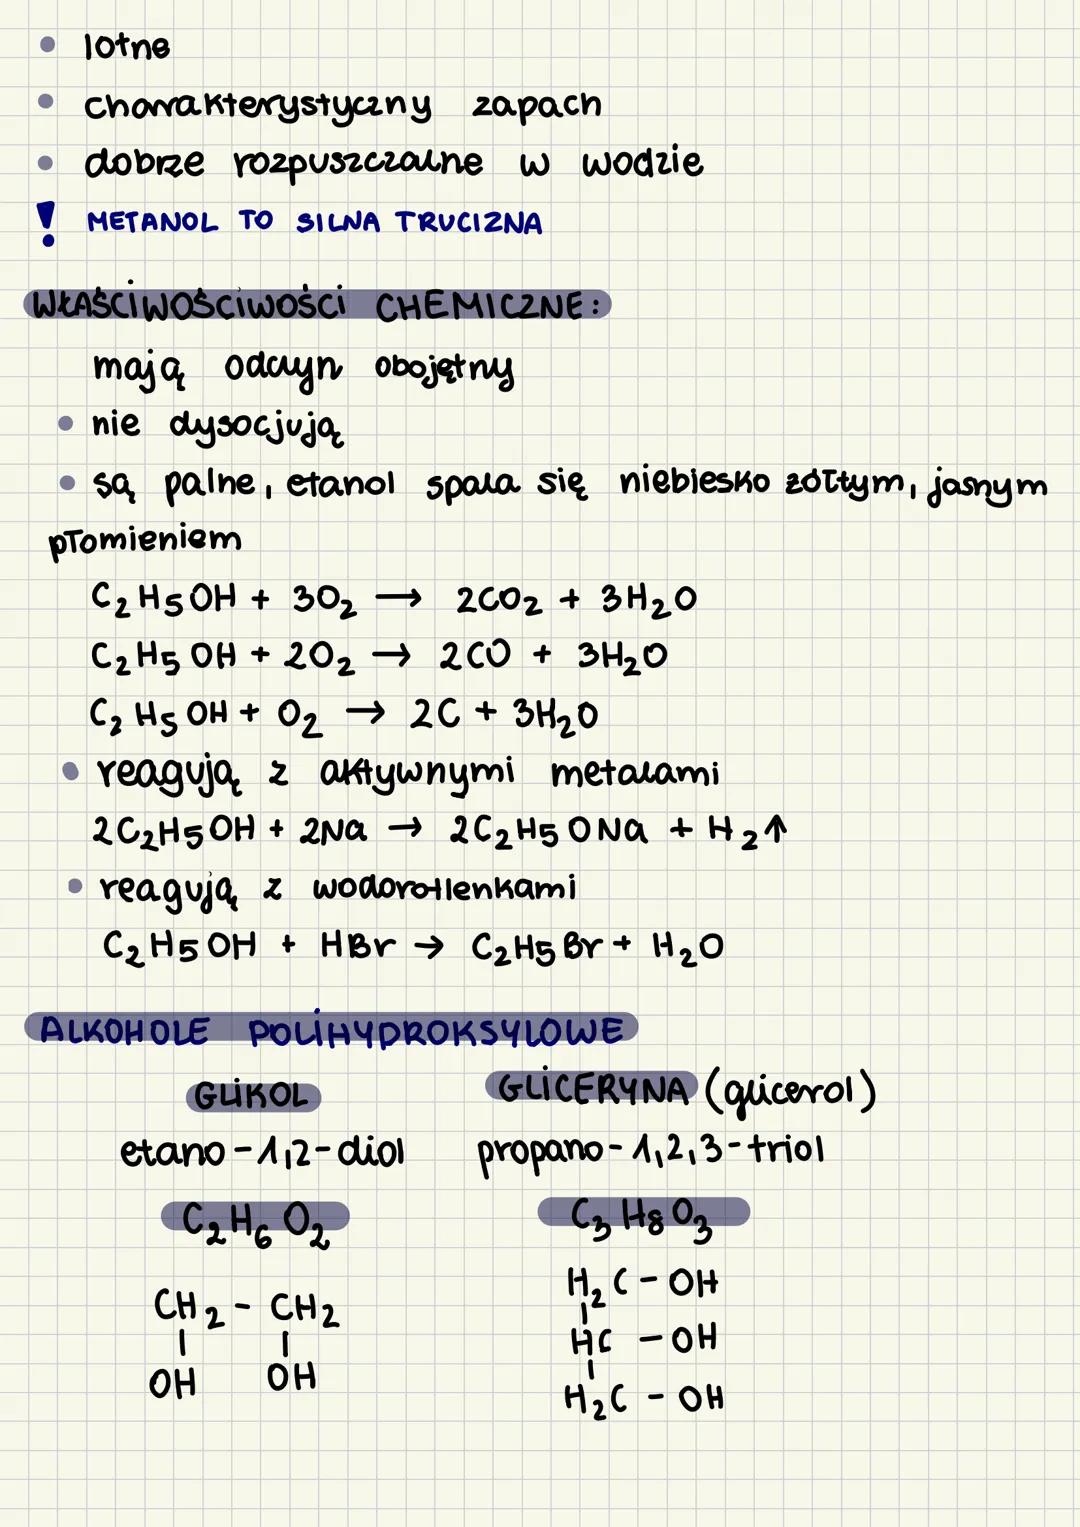 • lotne
• charakterystyczny zapach
• dobrze rozpuszczalne w wodzie
! METANOL TO SILNA TRUCIZNA
WŁAŚCIWOŚCIWOŚCI CHEMICZNE:
mają odczyn obojętny
• nie dysocjują
• są palne, etanol spala się niebiesko żółtym, jasnym
płomieniem
C₂H₅OH + 3O₂ → 2CO₂ + 3H₂O
C₂H₅OH + 2O₂ → 2CO + 3H₂O
C₂H₅OH + O₂ → 2C + 3H₂O
• reagują z aktywnymi metalami
2C₂H₅OH + 2Na → 2C₂H₅ONa + H₂↑
• reagują z wodorotlenkami
C₂H₅OH + HBr → C₂H₅Br + H₂O
ALKOHOLE POLIHYDROKSYLOWE
GLIKOL GLICERYNA (glicerol)
etano-1,2-diol propano-1,2,3-triol
C₂H₆O₂ C₃H₈O₃
CH₂ - CH₂
| |
OH OH
H₂C - OH
|
HC - OH
|
H₂C - OH